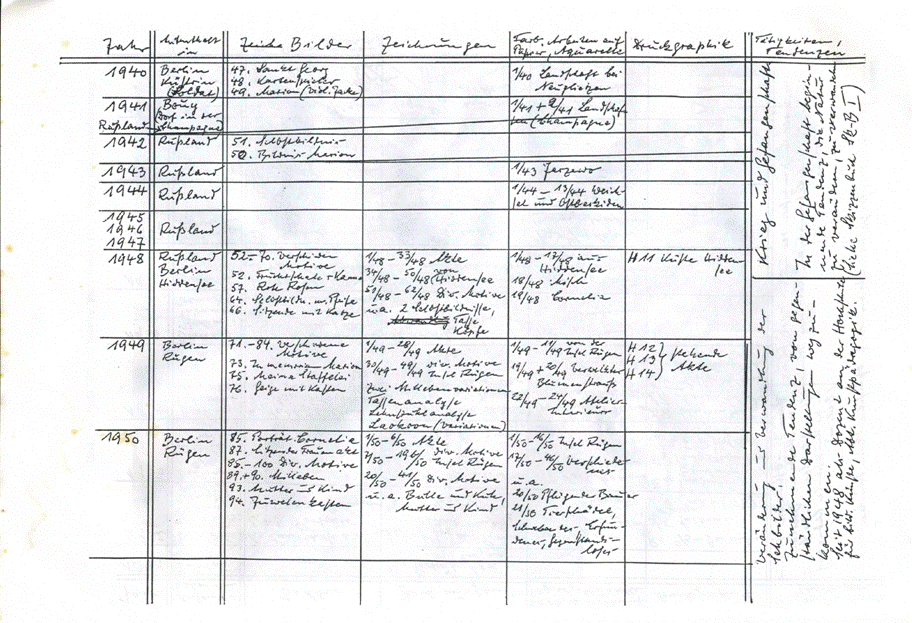 Jahr
Aufenthalt in
Zeichn. Bilder
Zeichnungen
Farb. Arbeiten auf Papier, Aquarelle
Druckgraphik
Tätigkeiten, Tendenzen
1940
Berlin
Küstrin
(Soldat)
47. Sankt Georg
48. Kartenspieler
49. Marion
1/40 Landschaft bei
1941
Rußland
Bouy
(Dorf in der
Champagne)
1/41 + 2/41 Landschaf-
ten (Champagne)
1942
Rußland
51. Selbstbildnis
50. Bildnis Marion
1943
Rußland
1/43
1944
Rußland
1/44 – 13/44 Weich-
sel und
1945
1946
1947
Rußland
1948
Rußland
Berlin
Hiddensee
52.–70. Verschieden
Motive
52.
57. Rote Rosen
64. Selbstbildn. m. Pfeife
66. Sitzende mit Katze
1/48 – 33/48 Akte
34/48 – 50/48 von
Hiddensee
51/48 – 62/48 Div. Motive
u.a. 2 Selbstbildnisse,
Tasse
Köpfe
1/48 – 17/48 aus
Hiddensee
18/48
19/48 Cornelia
H 11 Küste Hidden-
see
1949
Berlin
Rügen
71.–84. verschiedene
Motive
73. In memoriam Marion
75. Staffelei
76. Geige mit Kasten
1/49 – 29/49 Akte
30/49 – 49/49 div. Motive
Insel Rügen
zwei Stillebenvariationen
Tassenanalyse
Lehnstuhlanalyse
Laokoon (Variationen)
1/49 – von der
Insel Rügen
19/49 + 20/49
Blumenstrauß
22/49 – 24/49 Atelier-
Interieur
H 12
H 13
H 14
stehende
Akte
1950
Berlin
Rügen
85. Porträt Cornelia
87. sitzender Frauenakt
85.–100 Div. Motive
89.+90. Stilleben
93. Mutter und Kind
94.
1/50 – 6/50 Akte
7/50 – 19/50 div. Motive
Insel Rügen
20/50 – 41/50 Div. Motive
u. a. Bulle und Kühe,
Mutter und Kind
1/50 – 16/50 Insel Rügen
17/50 – 46/50 Verschiede-
nes
u. a.
20/50 Pflügender Bauer
21/50 Tierschädel,
Schreibender,
Gegenstands-
loses
Krieg und Gefangenschaft
In der Gefangenschaft begin-
nende Tendenz, die Natur
zu verändern, zu verwandeln
(siehe Skizzenbuch Sk B I)
Veränderung und Verwandlung der
Sehbilder.
Zunehmende Tendenz, von gegen-
ständlichen Darstellungen wegzu-
kommen.
Seit 1948 als Dozent an der Hochschule
für bild. Künste, Abt. Kunstpädagogik.